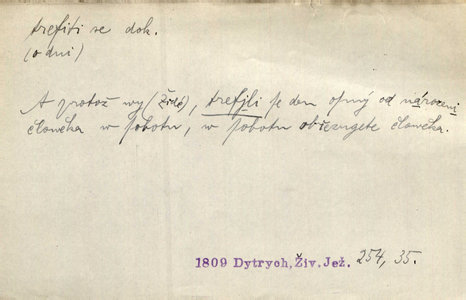 trefiti se dok.
(o dni)
A protož wy (Židé), trefjli se den osmý od národzení
člowěka w sobotu, w sobotu obřezugete člowěka.
1809 Dytrych, Živ. Jež. 254, 35.